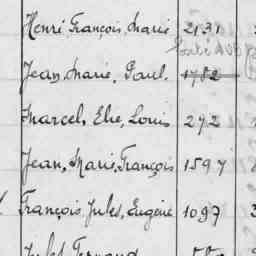 Henri François, Marie 2131
Jean, Marie, Paul. 1782
Marcel, Elie, Louis 272
Jean, Marie, François 1597
François, Jules, Eugène 1097
Jules Fernand